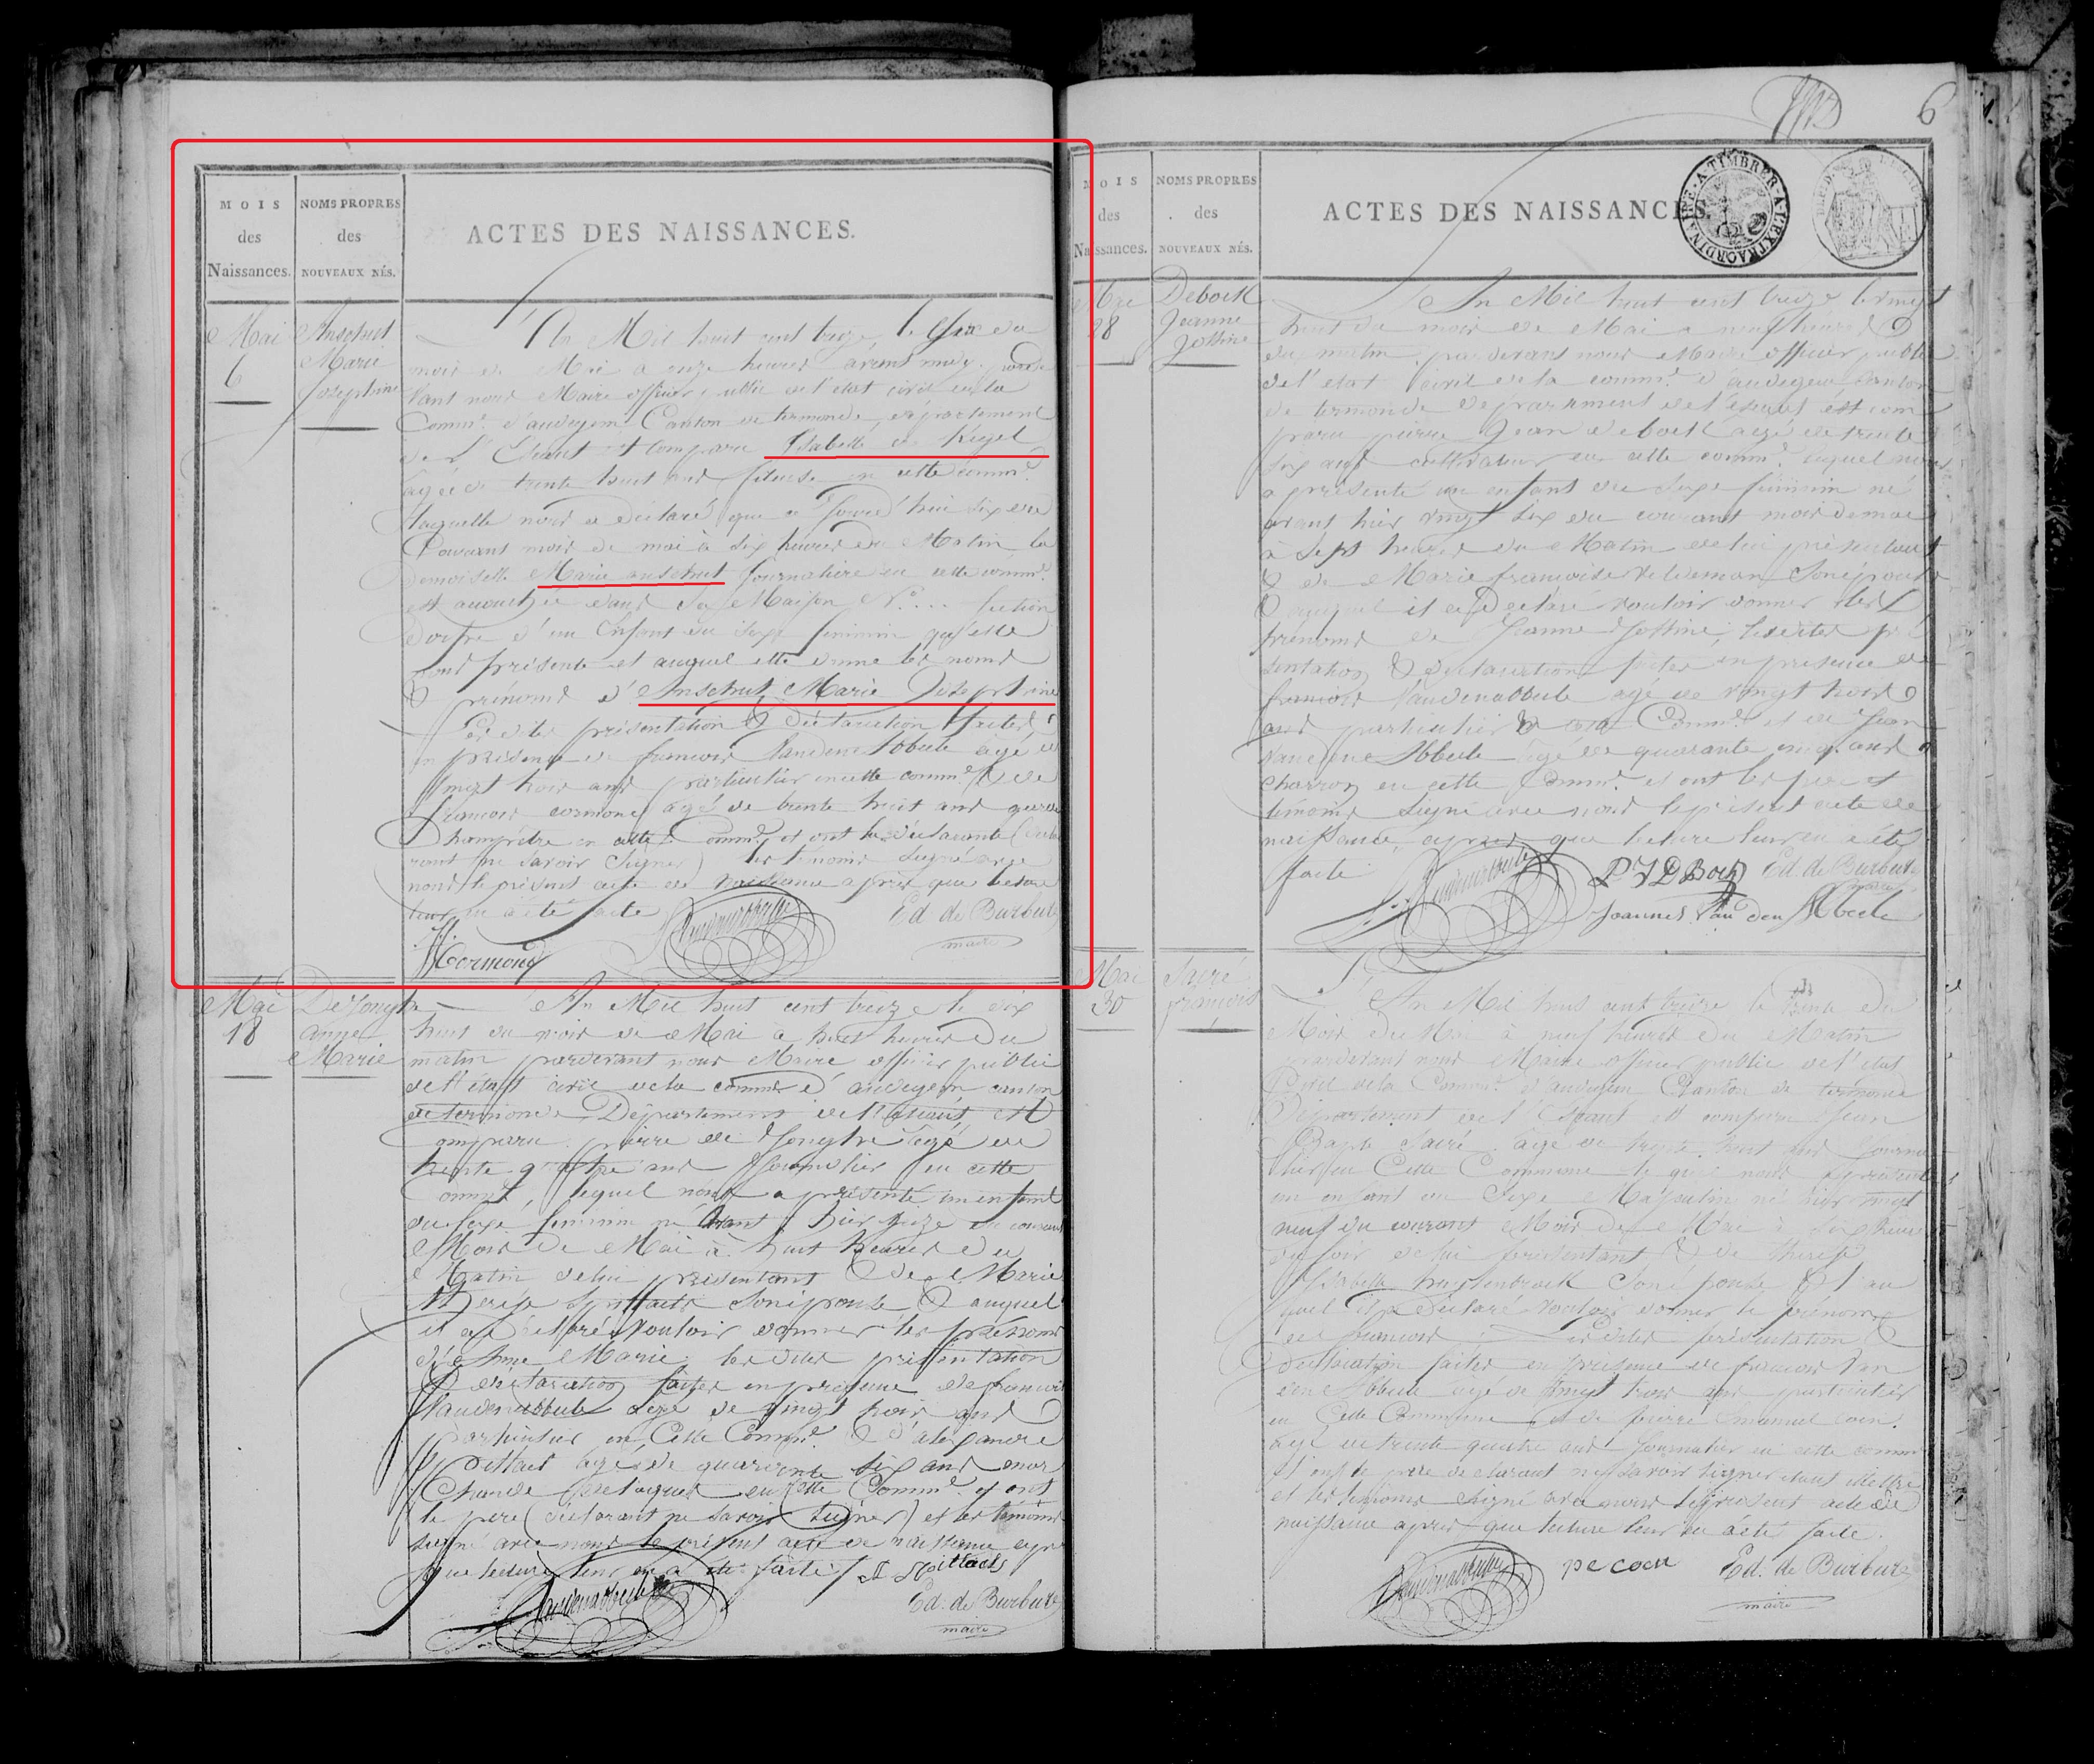 6
MOIS
des
Naissances.
NOMS PROPRES
des
NOUVEAUX NÉS.
ACTES DES NAISSANCES.
Mai
6
Anschut
Marie
Josephine
L'An Mil huit cent treize, le Six du
mois de Mai a onze heures avant midy, parde
vant nous Maire officier public de l'état civil de la
Comm.e d'audegem Canton de termonde, département
de l'Escaut est comparu Isabelle de Kegel
âgée de trente huit ans fileuse en cette comm.e
laquelle nous a declaré que ce jourd'hui six du
Courant mois de mai à six heures du Matin la
demoiselle Marie anschut journaliere en cette comm.e
est accouchée dans sa Maison N.o ... section
d'un Enfant du sexe feminin qu'elle
nous présente et auquel elle donne les noms
& prénoms d'Anschut Marie Josephine
Les dites présentation & déclaration faites
en présence de francois Vandenabbeele agé de
vingt trois ans particulier en cette comm.e & de
francois cormond agé de trente huit ans garde
champêtre en cette Comm.e et ont la déclarante (décla
rant ne savoir signer) les temoins signé avec
nous le présent acte de naissance après que lecture
leur en a été faite
Vandenabbeele
Ed. de Burbure
maire
F Cormond
Mai
18
DeJonghe
anne
Marie
L'An Mil huit cent treize le dix
huit du mois de Mai à huit heures du
matin pardevant nous Maire officier public
de l'état civil de la comm.e d'audegem canton
de termonde Département de l'Escaut, est
comparu pierre de Jonghe agé de
trente quatre ans Journalier en cette
comm.e, lequel nous a présenté un enfant
du sexe feminin né avant hier seize du courant
Mois de Mai à huit heures du
Matin de lui présentant & de Marie
Therese son épouse & auquel
il a déclaré vouloir donner les prénoms
d'Anne Marie; les dites présentation
& déclaration faites en présence de francois
Vandenabbeele agé de vingt trois ans
particulier en Cette Comm.e & d'alexandre
agé de quarante six ans mar
Chand en cette Comm.e et ont
le pere (déclarant ne savoir signer) et les témoins
signé avec nous le présent acte de naissance apres
que lecture leur en a été faite
Vandenabbeele
Ed. de Burbure
maire
MOIS
des
Naissances.
NOMS PROPRES
des
NOUVEAUX NÉS.
ACTES DES NAISSANCES.
A TIMBRER A L'EXTRAORDINAIRE
28
Debock
Jeanne
Jossine
L'An Mil huit cent treize le vingt
huit du mois de Mai a neuf heures
du matin, pardevant nous Maire officier public
de l'etat civil de la comm.e d'audegem, Canton
de termonde département de l'escaut est com
paru pierre Jean de bock agé de trente
six ans cultivateur en cette comm.e lequel nous
a présenté un enfant du sexe féminin né
avant hier vingt six du courant mois de mai
à sept heures du Matin de lui présentant
& de Marie francoise son épouse
& auquel il a déclaré vouloir donner les
prénoms de Jeanne Jossine; lesdites pré
sentation & déclaration faites en présence de
francois Vandenabbeele agé de vingt trois
ans particulier de cette Comm.e et de Jean
vanden Abbeele agé de quarante cinq ans
charron en cette Comm.e et ont les pere et
témoins signé avec nous le présent acte de
naissance, apres que lecture leur en a été
faite
Vandenabbeele
P J D Bock
Ed. de Burbure
maire
Joannes Van den Abbeele
Mai
30
Sacré
francois
L'An Mil huit cent treize le trente du
Mois de Mai à neuf heures du Matin
pardevant nous Maire officier public de l'etat
Civil de la Comm.e d'audegem Canton de termonde
Département de l'Escaut est comparu Jean
Bapte Sacré, agé de trente huit ans journa
lier en Cette Commune le quel nous a présenté
un enfant du Sexe Masculin né hier vingt
neuf du courant Mois de Mai à six heures
du soir de lui présentant & de therese
Isabelle son épouse & au
quel il a déclaré vouloir donner le prénom
de francois; Lesdites présentation &
déclaration faites en présence de francois Van
den Abbeele agé de vingt trois ans particulier
en Cette Commune et de pierre Emanuel coen
agé de trente quatre ans journalier en cette comm.e
et ont le pere déclarant ne savoir signer étant illettré
et les témoins signé avec nous le présent acte de
naissance apres que lecture leur en a été faite.
Vandenabbeele
pe coen
Ed. de Burbure
maire